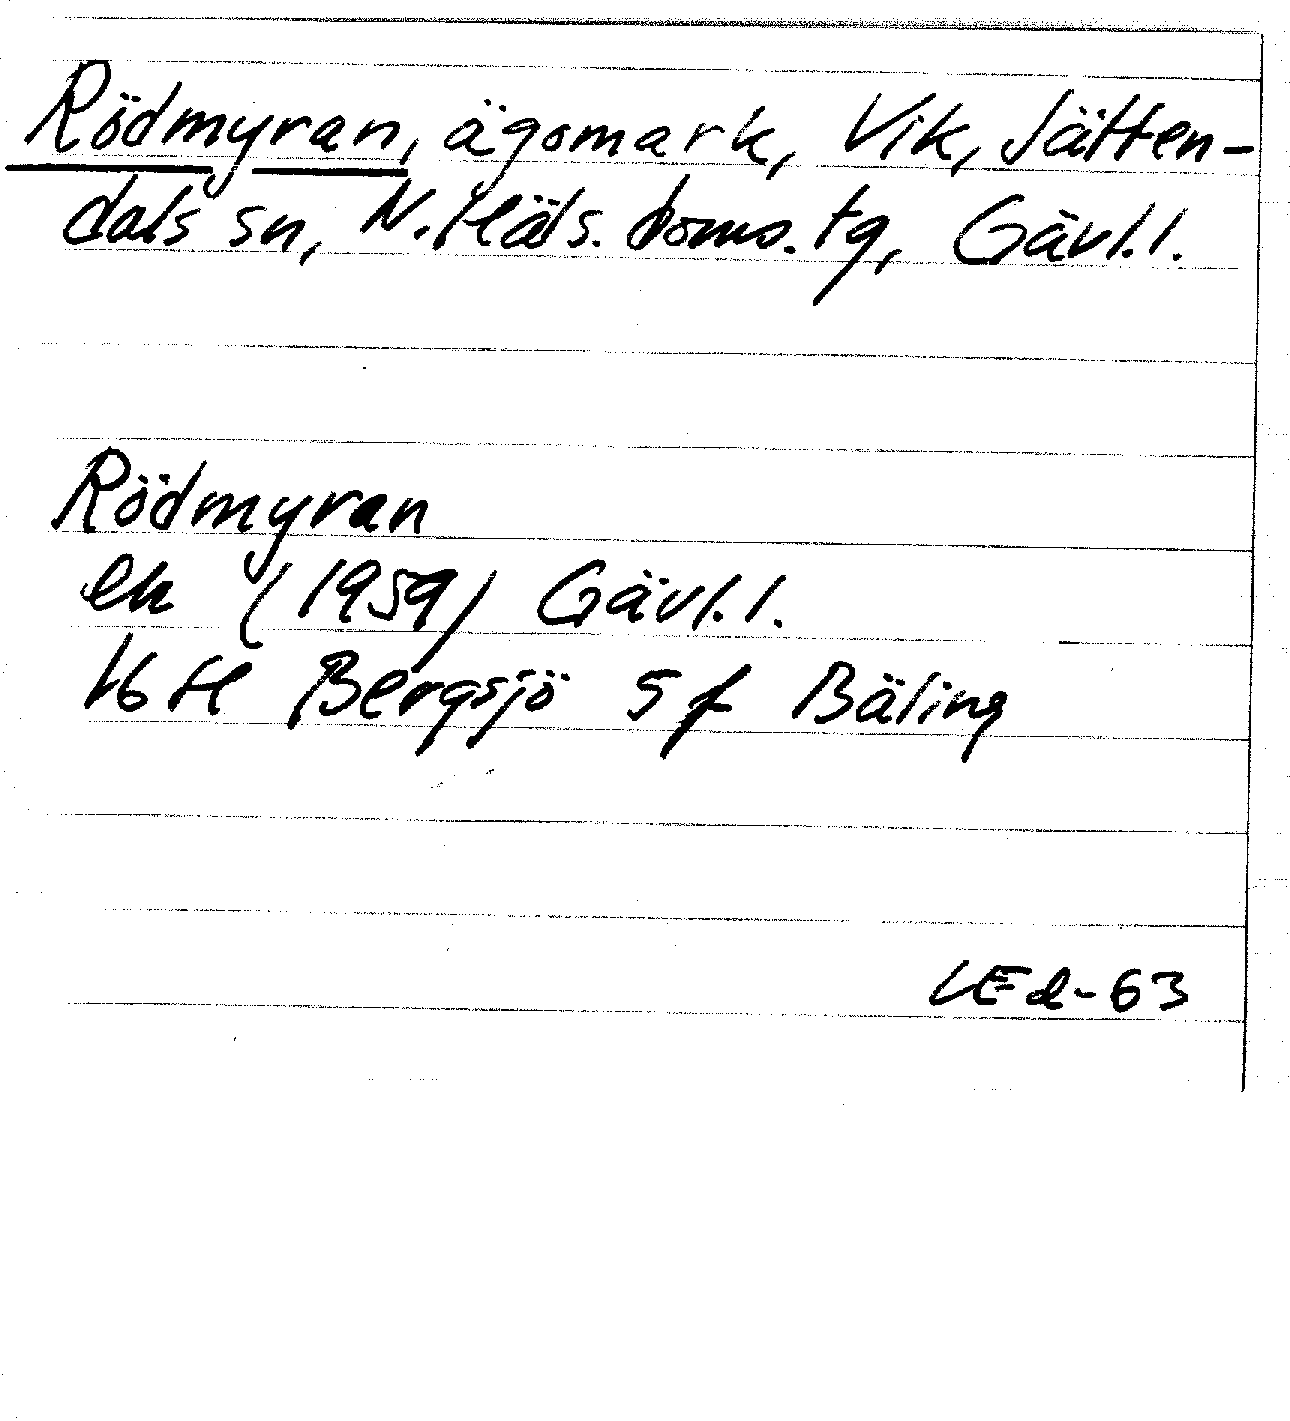 Rödmyran, ägomark, Vik, Jätten-
dals sn, N. Häls. doms. tg, Gävl. l.
Rödmyran
ek (1959) Gävl. l.
16 H Bergsjö 5 f Bäling
-63